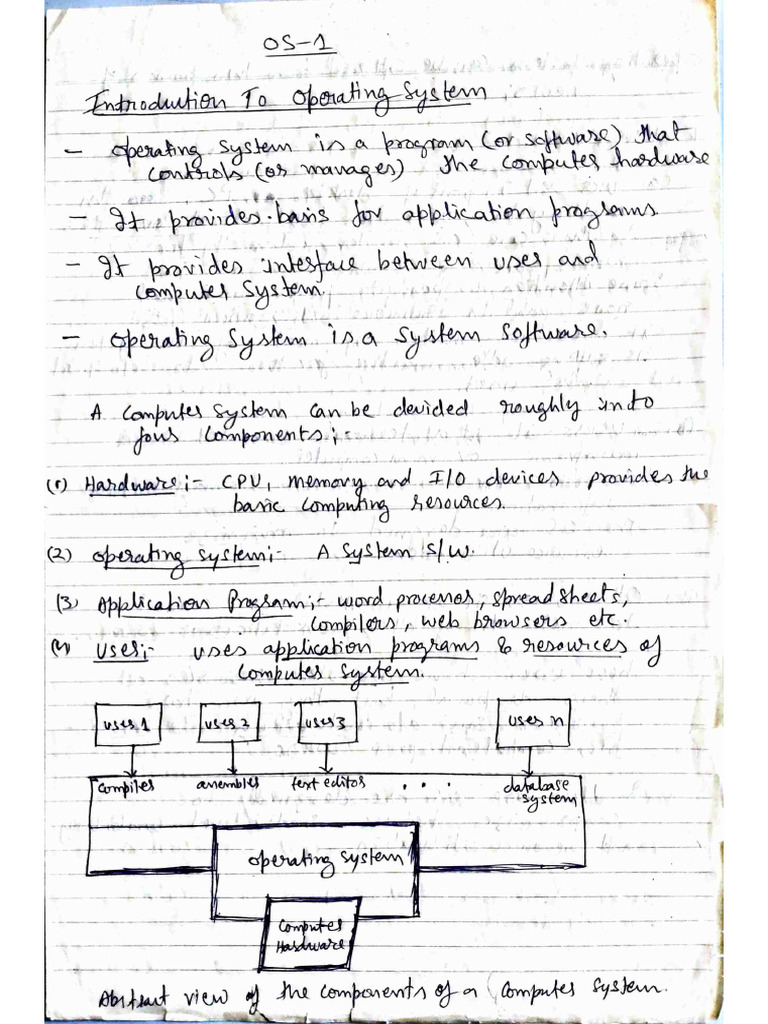 OS-1
Introduction To Operating System
- Operating System is a program (or software) that
controls (or manages) the computer hardware
- It provides basis for application programs.
- It provides interface between user and
computer System.
- Operating System is a System Software.
A computer system can be devided roughly into
four components:-
(1) Hardware:- CPU, Memory and I/O devices provides the
basic computing resources.
(2) Operating System:- A System S/W.
(3) Application Program:- word processor, spread sheets,
compilers, web browsers etc.
(4) User:- uses application programs & resources of
computer System.
user 1 user 2 user 3 user n
compiler assembler text editor . . . database
system
Operating System
Computer
Hardware
Abstract view of the components of a Computer System.